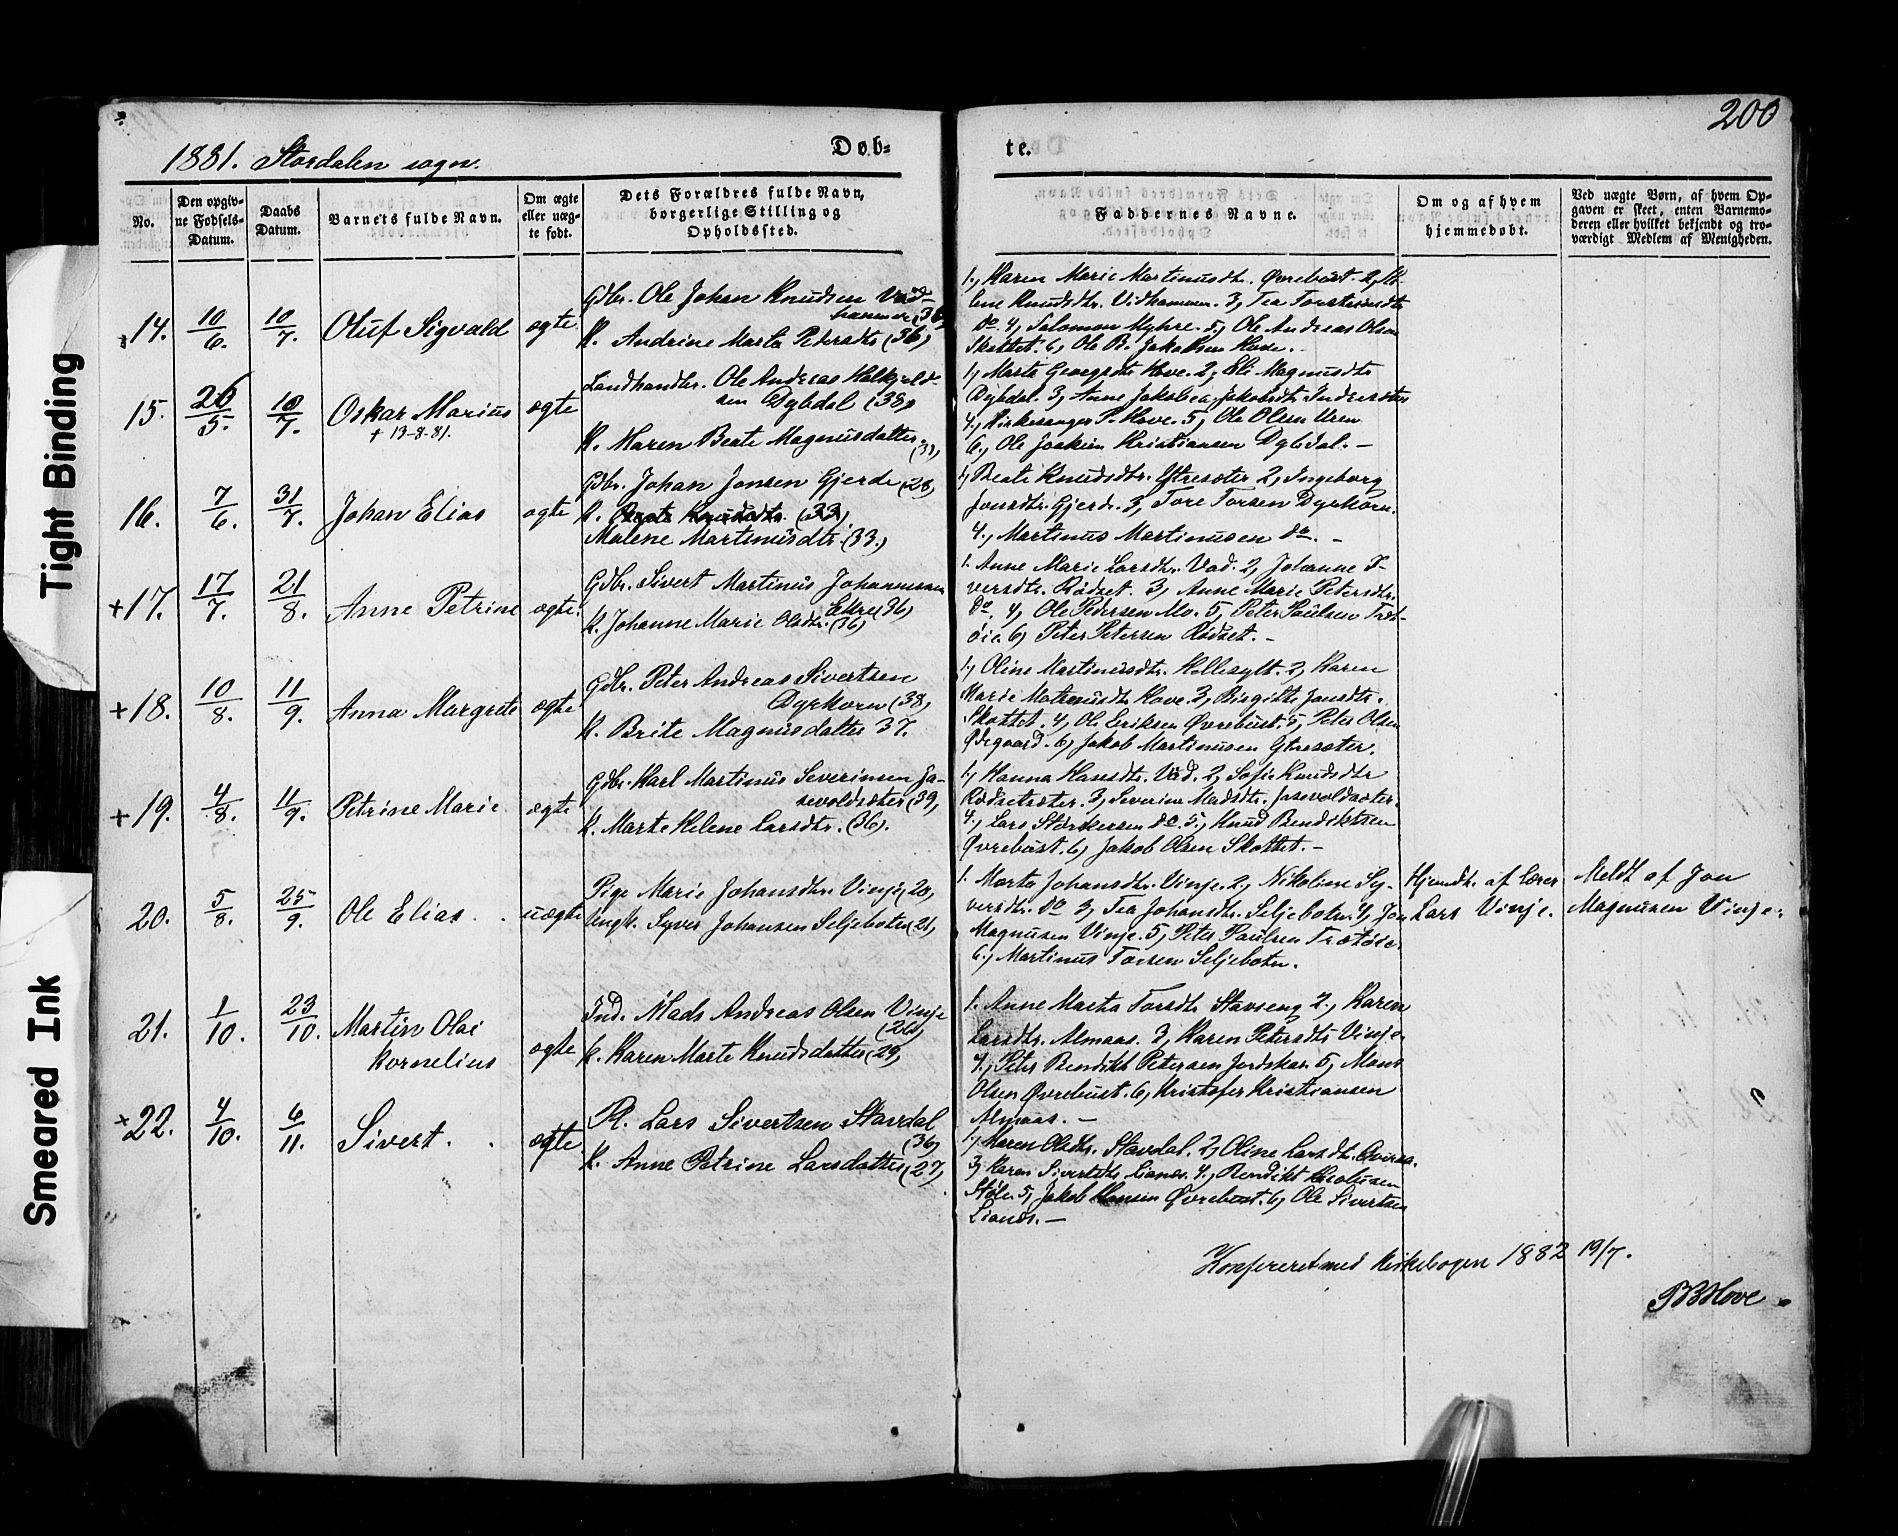 200
1881. Stordalen sogn.
Døb-
te.
No.
Den opgiv-
ne Fødsels-
Datum.
Daabs
Datum.
Barnets fulde Navn.
Om ægte
eller uæg-
te født.
Dets Forældres fulde Navn,
borgerlige Stilling og
Opholdssted.
Faddernes Navne.
Om og af hvem
hjemmedøbt.
Ved uægte Børn, af hvem Op-
gaven er skeet, enten Barnemo-
deren eller hvilket bekjendt og tro-
værdigt Medlem af Menigheden.
14. 10/6. 10/7. Oluf Sigvald ægte
Gdbr. Ole Johan Knudsen Vid-
hammer (36)
K. Andrine Marta Petersdtr (36)
1, Karen Marie Martinusdtr. Øvrebust. 2,
lene Knudsdtr. Vidhammer. 3, Tea Torsteinsdtr
Do. 4, Salomon Myhre. 5, Ole Andreas Olsen
Skottet. 6, Ole B. Jakobsen Hove.
15. 26/5. 10/7. Oskar Marius ægte
+ 13-8-81.
Landhandlr. Ole Andreas Halkjelds-
sen Dybdal (38)
K. Maren Beate Magnusdatter
1, Marte Georgsdtr Hove. 2, Eli Magnusdtr
Dybdal. 3, Anne Jakobea Jakobsdtr Indresæter
4, Kirkesanger P. Hove. 5, Ole Olsen Uren
6, Ole Joakim Kristiansen Dybdal. -
16. 7/6. 31/7. Johan Elias ægte
Gdbr. Johan Jonsen Gjerde (28)
K. Knudsdtr. (33)
Malene Martinusdtr. (33.)
1, Beate Knudsdtr. Ytresæter 2, Ingeborg
Jonsdtr. Gjerde. 3, Tore Torsen Dyrkorn.
4, Martinus Martinusen Do. -
+17. 17/7. 21/8. Anne Petrine ægte.
Gdbr. Sivert Martinus Johannesen
Ekre (36)
K. Johanne Marie Olsdtr. (36)
1. Anne Marie Larsdtr. Vad. 2, Johanne I-
versdtr. Rødset. 3, Anne Marie Petersdtr.
Do. 4, Ole Pedersen Mo. 5, Peter Paulsen Træt-
øie. 6, Peter Petersen Rødset. -
+18. 10/8. 11/9. Anna Margrete ægte
Gdbr. Peter Andreas Sivertsen
Dyrkorn (38)
K. Brite Magnusdatter 37.
1, Oline Martinusdtr. Hellesylt. 2, Karen
Marie Hove. 3, Birgitte Jonsdtr.
Skottet. 4, Ole Eriksen Øvrebust. 5, Peter Olsen
Ødegaard. 6, Jakob Martinusen Ytresæter.
+19. 4/8. 11/9. Petrine Marie ægte
Gdbr. Karl Martinus Severinsen Ja-
sevoldsæter (39)
K. Marte Helene Larsdtr. (36).
1, Hanna Hansdtr. Vad. 2, Sofie Knudsdtr
Rødsetsæter. 3, Severine Madsdtr. Jasevoldsæter.
4, Lars Størkersen do. 5, Knud Bendiktsen
Øvrebust. 6, Jakob Olsen Skottet. -
20. 5/8. 25/9. Ole Elias. uægte
Pige Marie Johansdtr. Vinje (20)
Ungk. Syver Johansen Seljebotn (21)
1. Marta Johansdtr. Vinje. 2, Nikoline Sy-
versdtr. Do 3, Tea Johansdtr. Seljebotn. 4, Jon
Magnusen Vinje. 5, Peter Paulsen Trætøie.
6, Martinus Torsen Seljebotn.
Hjemdt. af Lærer
Lars Vinje.
Meldt af Jon
Magnusen Vinje.
21. 1/10. 23/10. Martin Olai
Kornelius ægte
Ind. Mads Andreas Olsen Vinje
K. Karen Marte Knudsdatter (29)
1. Anne Marta Torsdtr Stavseng 2, Karen
Larsdtr. Almaas. 3, Karen Petersdtr Vinje.
4, Peter Bendikt Petersen Jordskar. 5, Mons
Olsen Øvrebust. 6, Kristofer Kristiansen
Almaas. -
×22. 4/10. 6/11. Sivert. ægte
Pl. Lars Sivertsen Stavdal
(36)
K. Anne Petrine Larsdatter (27)
1, Karen Olsdtr. Stavdal. 2, Oline Larsdtr.
3, Karen Sivertsdtr. Lianes. 4, Bendikt Jacobusen
Støle. 5, Jakob Hansen Øvrebust. 6, Ole Sivertsen
Lianes. -
Konfereret med Kirkebogen 1882 19/7.
PBHove
Tight Binding
Smeared Ink